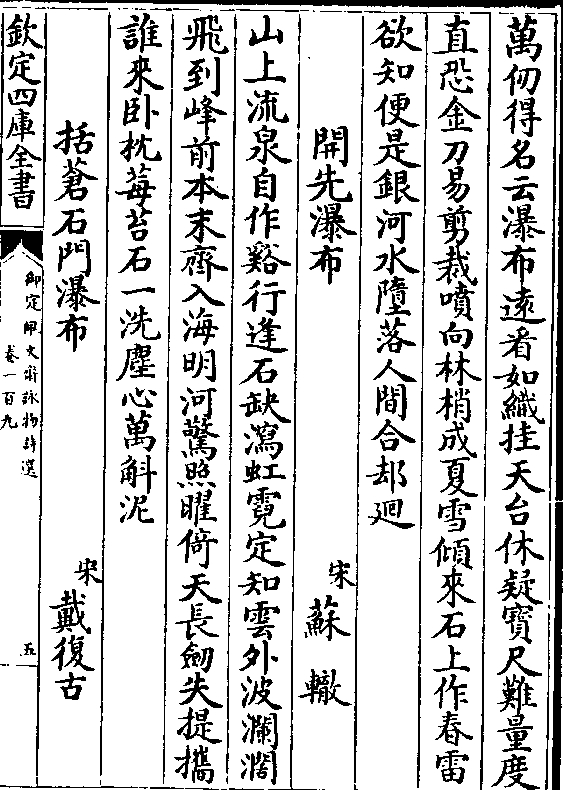 萬仞得名云瀑布遠看如織挂天台休疑寶尺難量度
直恐金刀易剪裁噴向林梢成夏雪傾來石上作春雷
欲知便是銀河水墮落人間合却廻
開先瀑布
宋
蘇轍
山上流泉自作谿行逢石缺瀉虹霓定知雲外波瀾濶
飛到峰前本末齊入海明河驚照曜倚天長劒失提攜
誰來卧枕莓苔石一洗塵心萬斛泥
括蒼石門瀑布
宋
戴復古
欽定四庫全書
御定佩文齋詠物詩選
卷一百九
五